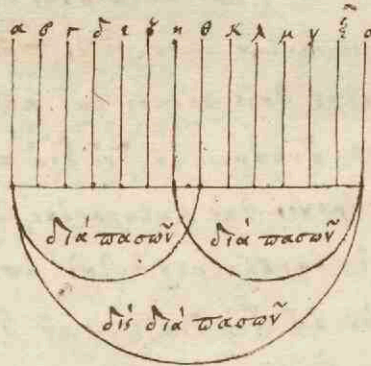 α ϐ γ δ ε ζ η θ κ λ μ ν ξ ο
διά πασων͂ διά πασων͂
δὶς διά πασων͂